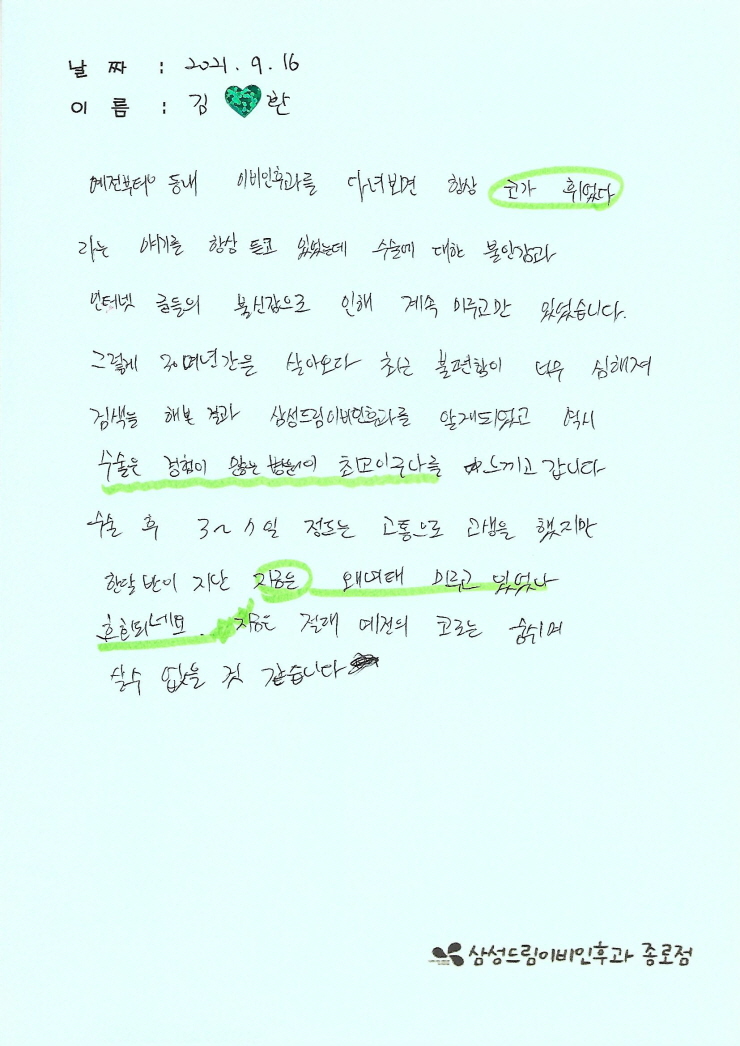 날 짜 : 2021. 9. 16
이 름 : 김 환
예전부터 동내 이비인후과를 다녀보면 항상 코가 휘었다
라는 얘기를 항상 듣고 있었는데 수술에 대한 불안감과
인터넷 글들의 불신감으로 인해 계속 미루고만 있었습니다.
그렇게 30여년간을 살아오다 최근 불편함이 너무 심해져
검색을 해본 결과 삼성드림이비인후과를 알게되었고 역시
수술은 경험이 많은 병원이 최고이구나를 느끼고 갑니다
수술 후 3~4일 정도는 고통으로 고생을 했지만
한달 반이 지난 지금은 왜여태 미루고 있었나
후회되네요. 지금은 절대 예전의 코로는 숨쉬며
살수 없을 것 같습니다
삼성드림이비인후과 종로점